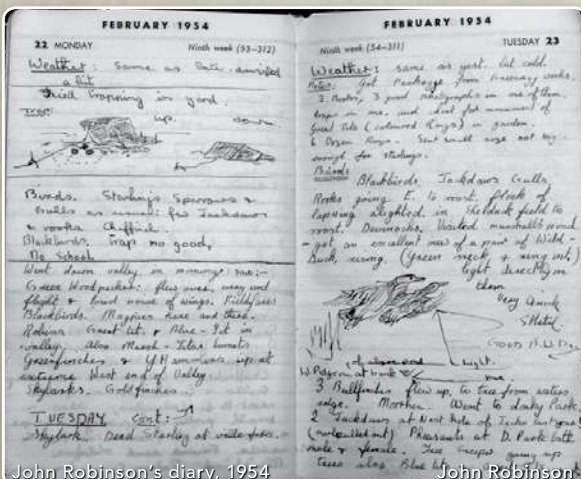 FEBRUARY 1954
22 MONDAY
Ninth week (53-312)
Weather: Same as late.
a bit
Tried trapping in yard.
Trap: up. down
Birds. Starlings Sparrows &
Gulls as usual: few Jackdaws
& rooks
Blackbirds. Trap no good,
No School
Went down valley, in morning: saw:-
Green Woodpecker: flew over,
flight & loud noise of wings. Fieldfares
Blackbirds. Magpies here and there.
Robins Great tit, & Blue-Tit in
valley. Also Marsh-Tits linnets
Greenfinches & Y Hammers up at
extreme West end of Valley.
Skylarks. Goldfinches.
TUESDAY cont:
Skylark. Dead Starling at
John Robinson's diary, 1954
FEBRUARY 1954
Ninth week (54-311)
TUESDAY 23
Weather: same as yest. but cold.
Notes. Got Package from works.
2 Books, 3 good photographs in one of them.
traps in one, and of
Great Tits (coloured Rings) in garden.
6 Dozen Rings. Sent small size not big
enough for starlings.
Birds
Blackbirds, Jackdaws Gulls,
Rooks going to roost, flock of
Lapwing alighted in Shelduck field to
roost. Dunnocks. Visited pond
- got an excellent view of a pair of Wild-
Duck, rising. (Green neck & ring etc)
light directly on
them
Very Quick
Sketch
light.
W. Pigeon at bank
3 Bullfinches flew up to tree from waters
edge. Moorhen. Went to Park
2 Jackdaws at Nest hole of
Pheasants at D. Park both
male & female. Tree Creeper going up
trees also Blue tit
John Robinson'